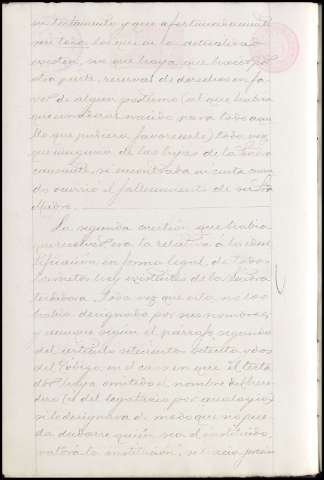 su testamento y que afortunadamente
son todos los que en la actualidad
existen, sin que haya que hacer por
otra parte, reserva de derechos en fa-
vor de algun póstumo (al que habria
que considerar nacido para todo aque-
llo que pudiera favorecerle) toda vez
que ninguna de las hijas de la Señora
causante, se encontraba en cinta cuan-
do ocurrió el fallecimiento de su Sra
Madre.
La segunda cuestión que habia
que resolver era la relativa á la iden-
tificación en forma legal, de todos
los nietos hoy existentes de la Señora
testadora, toda vez que esta, no los
habia designado por sus nombres,
y aunque según el párrafo segundo
del artículo setecientos setenta y dos
del Código, en el caso en que el testa-
dor haya omitido el nombre del here-
dero (ó del legatario por analogia)
si lo designara de modo que no pue-
da dudarse quién sea el instituido,
valdrá la institución, es lo cierto